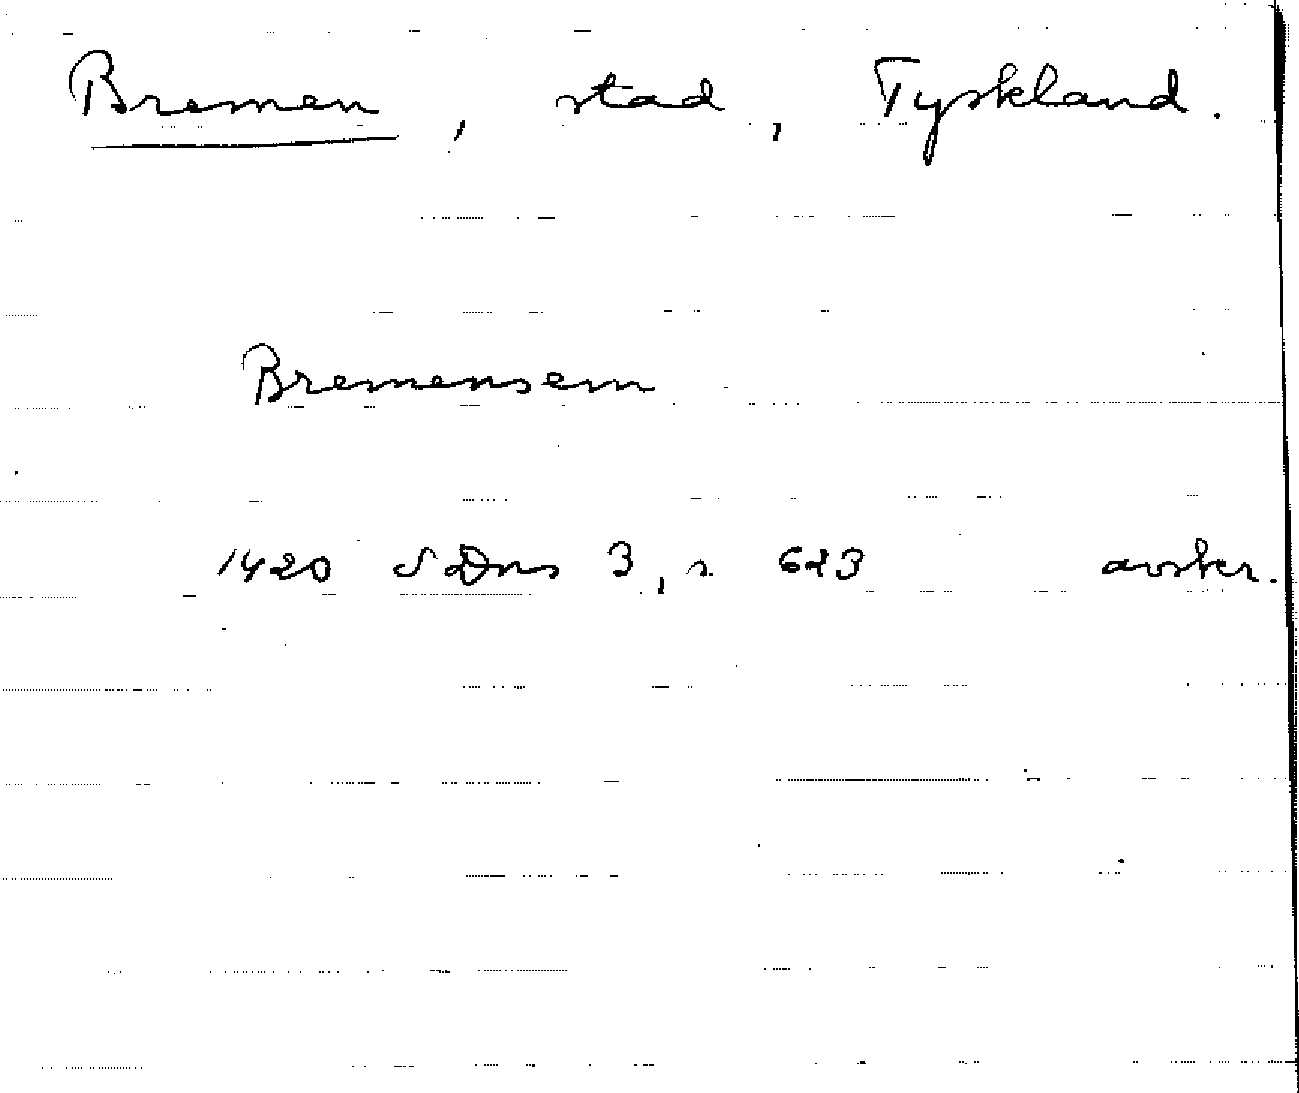 Bremen, stad, Tyskland.
Bremensem
1420 SDns 3, s. 623 avskr.